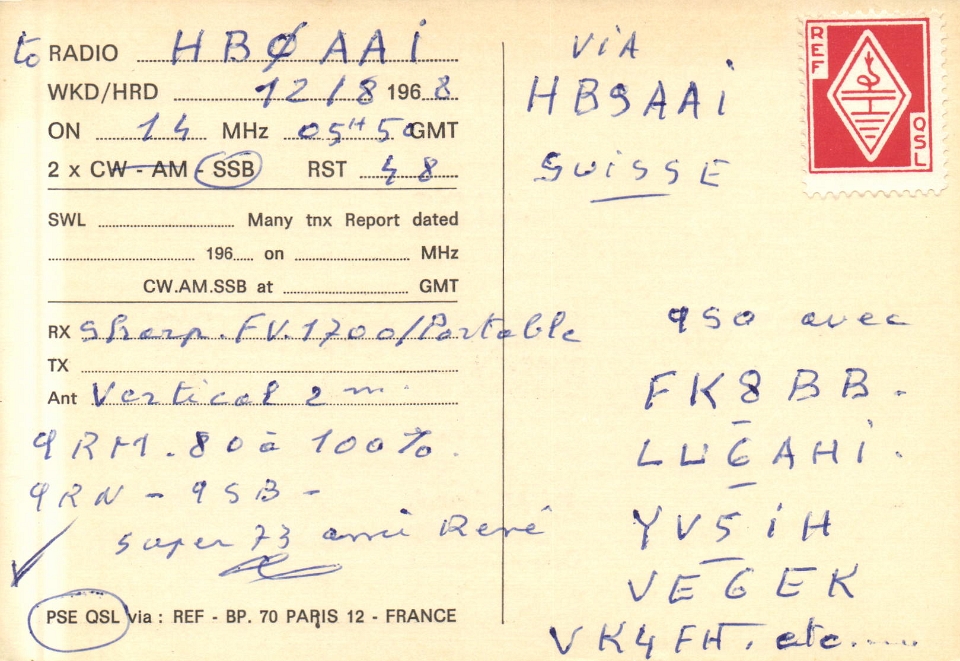 to RADIO HBØAAi
WKD/HRD 12/8 1968
ON 14 MHz 05H50 GMT
2 x CW - AM - SSB RST 48
SWL ........ Many tnx Report dated
........ 196.... on ........ MHz
CW.AM.SSB at ........ GMT
RX Sharp.FV.1700/Portable
TX ........
Ant Vertical 2 m.
QRM. 80 à 100%.
QRN - QSB -
super 73 ami René
PSE QSL via : REF - BP. 70 PARIS 12 - FRANCE
ViA
HB9AAi
SUiSSE
REF
QSL
QSO avec
FK8BB.
LU6AHi.
YV5iH
VE6EK
VK4FH. etc.....